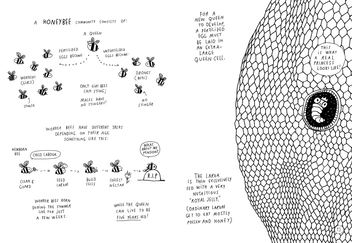 A HONEYBEE COMMUNITY CONSISTS OF:
A QUEEN
FERTILISED
EGGS BECOME
UNFERTILISED
EGGS BECOME
WORKERS
(GIRLS)
DRONES
(BOYS)
ONLY GIRL BEES
CAN STING;
MALES HAVE
NO STINGERS!
STINGER
NO
STINGER
WORKER BEES HAVE DIFFERENT TASKS
DEPENDING ON THEIR AGE
SOMETHING LIKE THIS:
WORKER
BEE
CLEAN &
GUARD
FEED
LARVAE
BUILD
CELLS
COLLECT
NECTAR
WHAT
ABOUT MY
PENSION?
R.I.P.
WORKER BEES BORN
DURING THE SUMMER
LIVE FOR JUST
A FEW WEEKS.
WHILE THE QUEEN
CAN LIVE TO BE
FIVE YEARS OLD!
FOR A
NEW QUEEN
TO DEVELOP,
A FERTILISED
EGG MUST
BE LAID IN
AN EXTRA-
LARGE
QUEEN CELL.
THIS IS
WHAT A
REAL
PRINCESS
LOOKS LIKE!
THE LARVA
IS THEN EXCLUSIVELY
FED WITH A VERY
NUTRITIOUS
"ROYAL JELLY."
(ORDINARY LARVAE
GET TO EAT MOSTLY
POLLEN AND HONEY.)